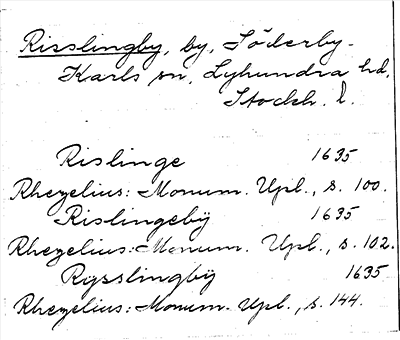 Risslingby, by, Söderby-
Karls sn, Lyhundra hd,
Stockh. l.
Rislinge 1635
Rhezelius: Monum. Upl., s. 100.
Rislingebÿ 1635
Rhezelius: Monum. Upl., s. 102.
Rysslingbÿ 1635
Rhezelius: Monum. Upl., s. 144.